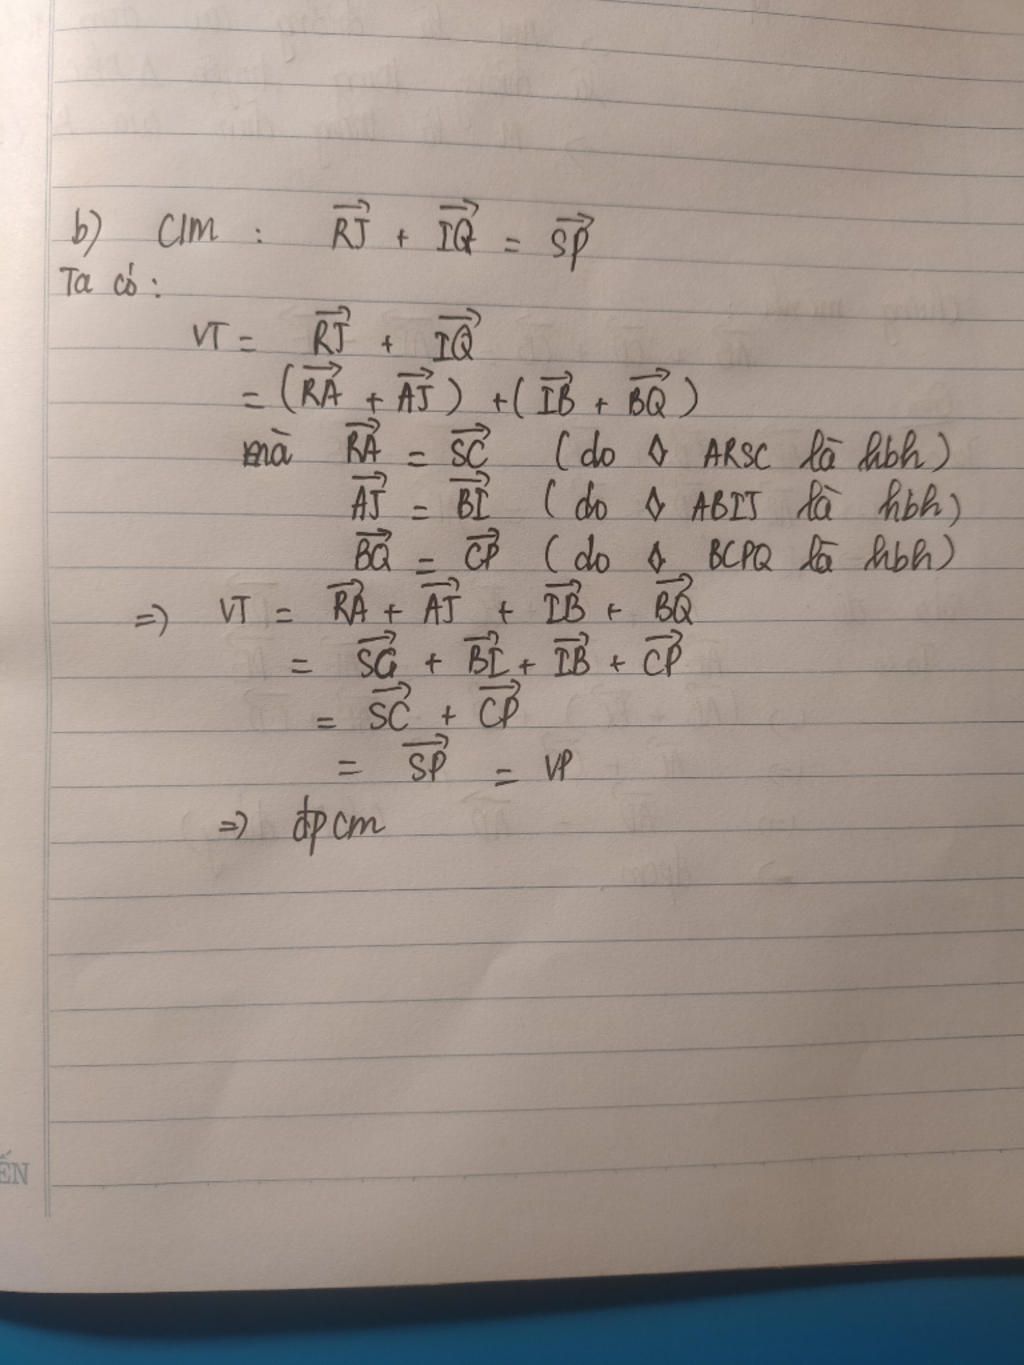 b) C/m : RJ⃗ + IQ⃗ = SP⃗
Ta có :
VT = RJ⃗ + IQ⃗
= (RA⃗ + AJ⃗) + (IB⃗ + BQ⃗)
mà RA⃗ = SC⃗ (do ◊ ARSC là hbh)
AJ⃗ = BI⃗ (do ◊ ABIJ là hbh)
BQ⃗ = CP⃗ (do ◊ BCPQ là hbh)
=> VT = RA⃗ + AJ⃗ + IB⃗ + BQ⃗
= SC⃗ + BI⃗ + IB⃗ + CP⃗
= SC⃗ + CP⃗
= SP⃗ = VP
=> đpcm
ẾN